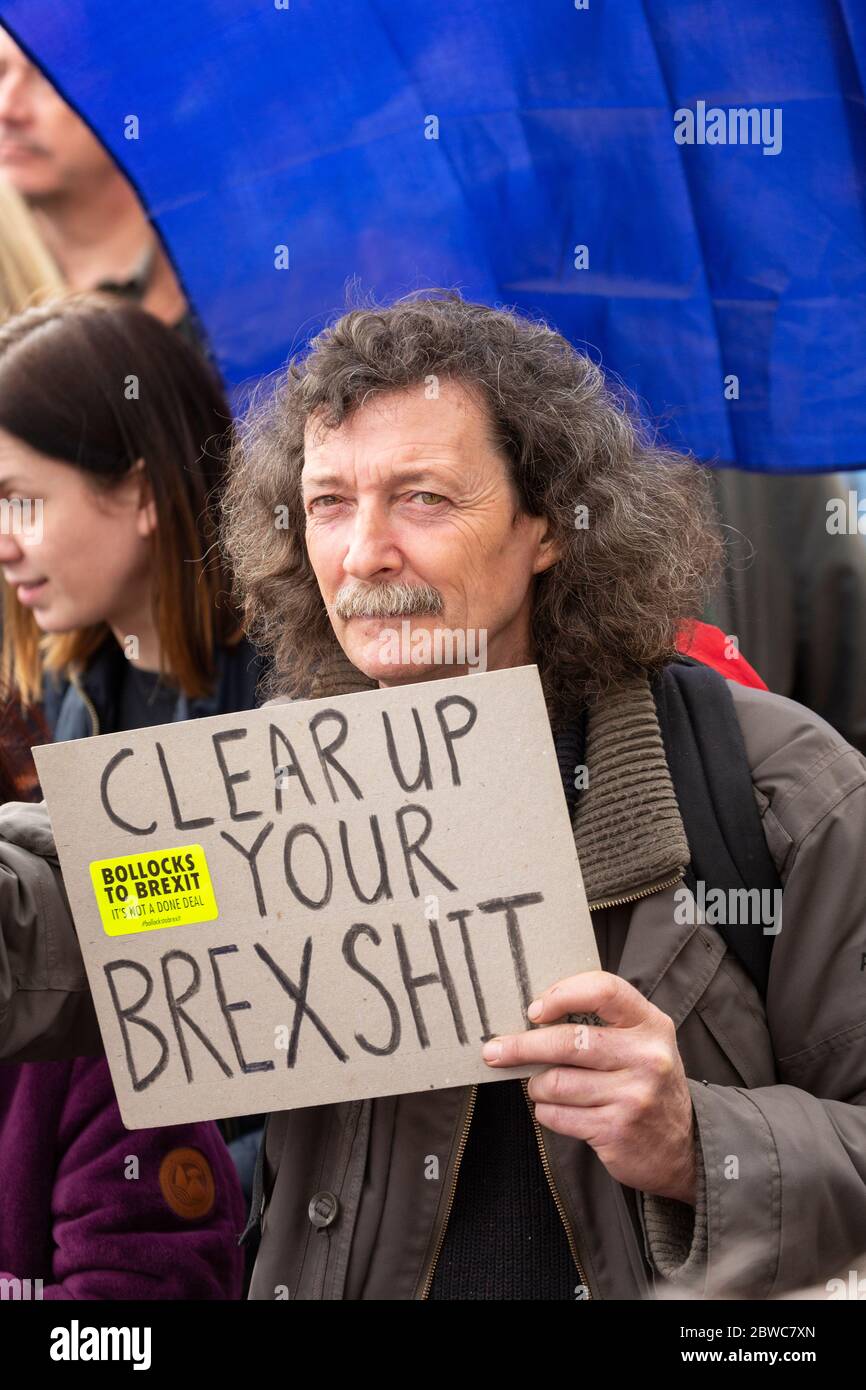 CLEAR UP
YOUR
BREXSHIT
BOLLOCKS
TO BREXIT
IT'S NOT A DONE DEAL
#bollockstobrexit
alamy
a
Image ID: 2BWC7XN
www.alamy.com